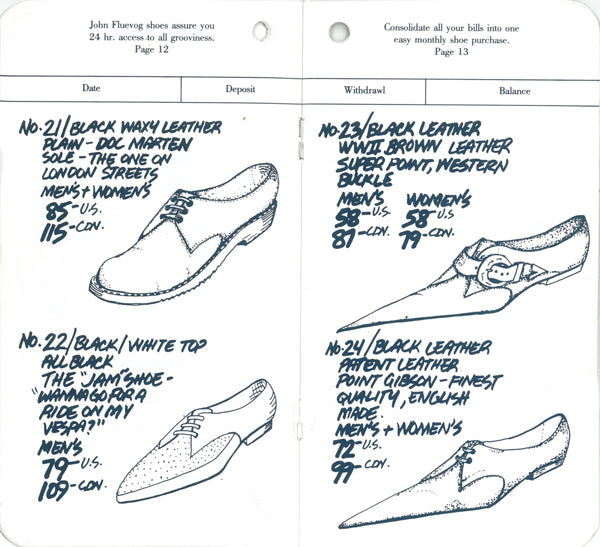 John Fluevog shoes assure you
24 hr. access to all grooviness.
Page 12
Date
Deposit
NO. 21/BLACK WAXY LEATHER
PLAIN - DOC MARTEN
SOLE - THE ONE ON
LONDON STREETS
MEN'S + WOMEN'S
85- U.S.
115- CDN.
NO. 22/BLACK/WHITE TOP
ALL BLACK
THE "JAM" SHOE -
"WANNA GO FOR A
RIDE ON MY
VESPA?"
MEN'S
79- U.S.
109- CDN.
Consolidate all your bills into one
easy monthly shoe purchase.
Page 13
Withdrawl
Balance
NO. 23/BLACK LEATHER
WWII BROWN LEATHER
SUPER POINT, WESTERN
BUCKLE
MEN'S WOMEN'S
58- U.S. 58- U.S
87- CDN. 79- CDN.
NO. 24/BLACK LEATHER
PATENT LEATHER
POINT GIBSON - FINEST
QUALITY, ENGLISH
MADE.
MEN'S + WOMEN'S
72- U.S.
99- CDN.